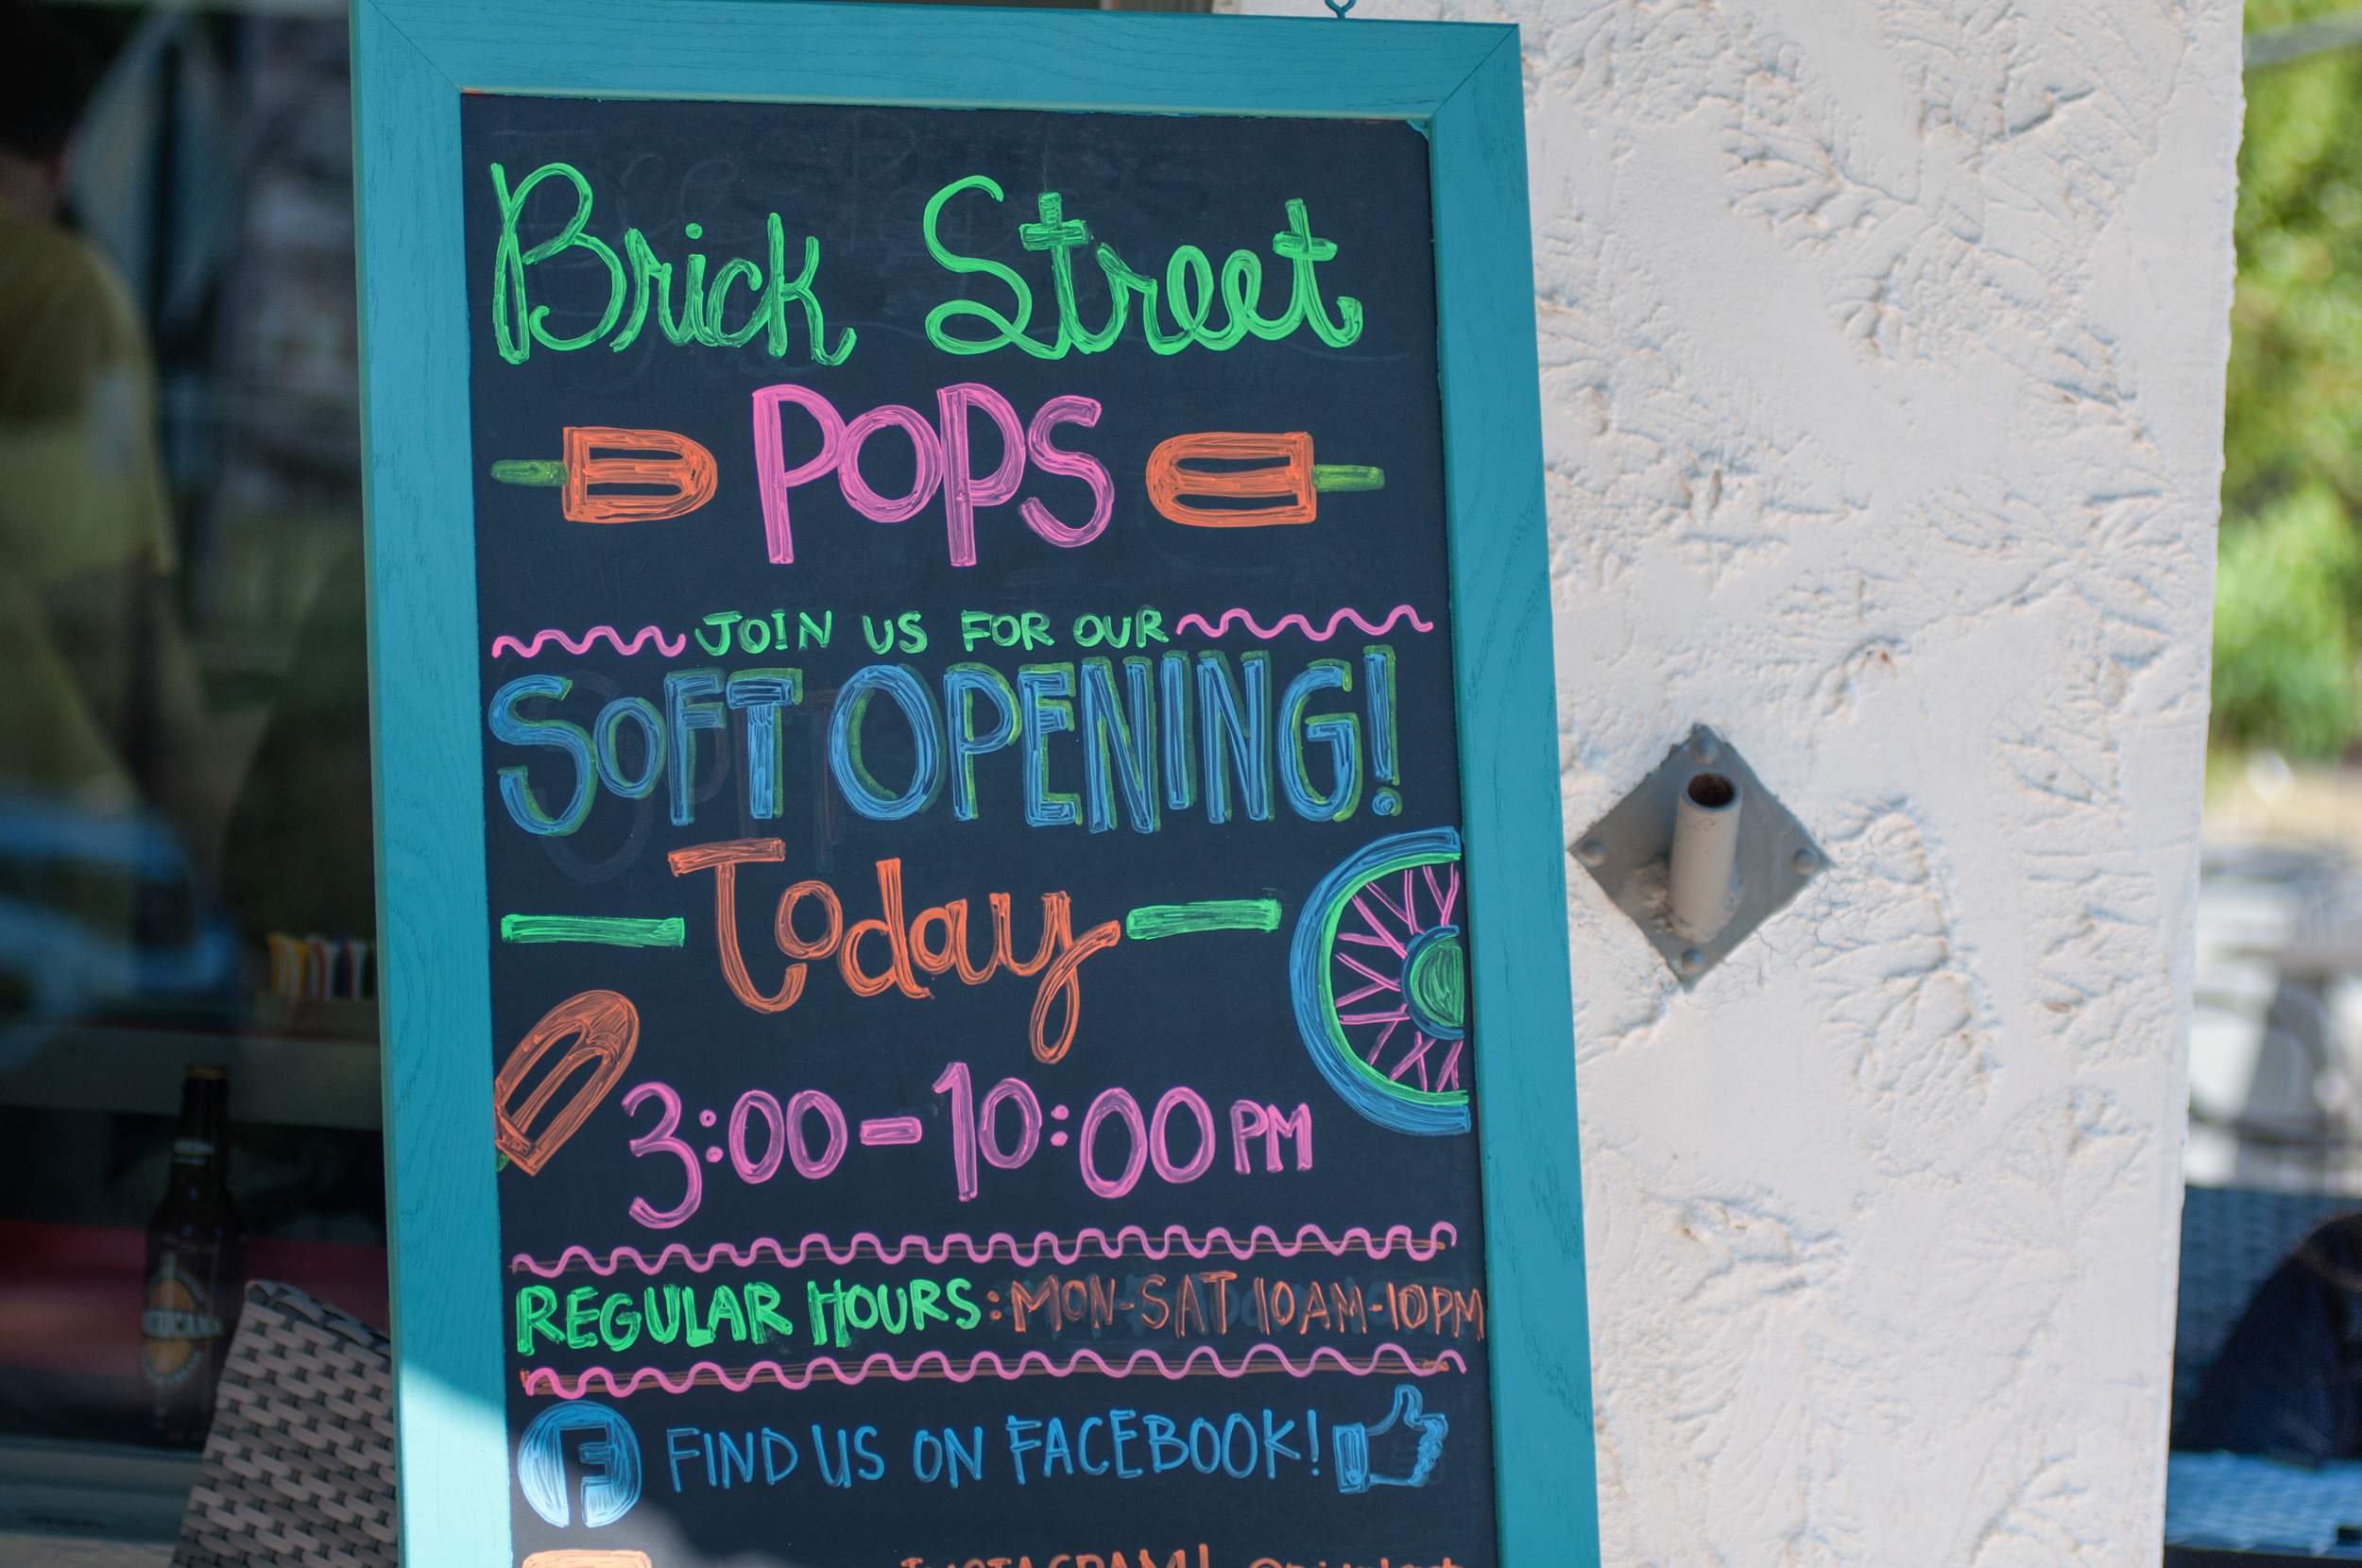 Brick Street
POPS
JOIN US FOR OUR
SOFT OPENING!
Today
3:00-10:00 PM
REGULAR HOURS: MON-SAT 10AM-10PM
F FIND US ON FACEBOOK!
INSTAGRAM!